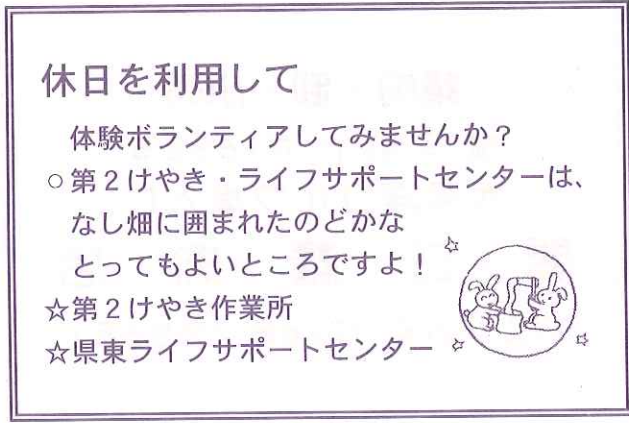 休日を利用して
体験ボランティアしてみませんか？
○第２けやき・ライフサポートセンターは、
なし畑に囲まれたのどかな
とってもよいところですよ！
☆第２けやき作業所
☆県東ライフサポートセンター